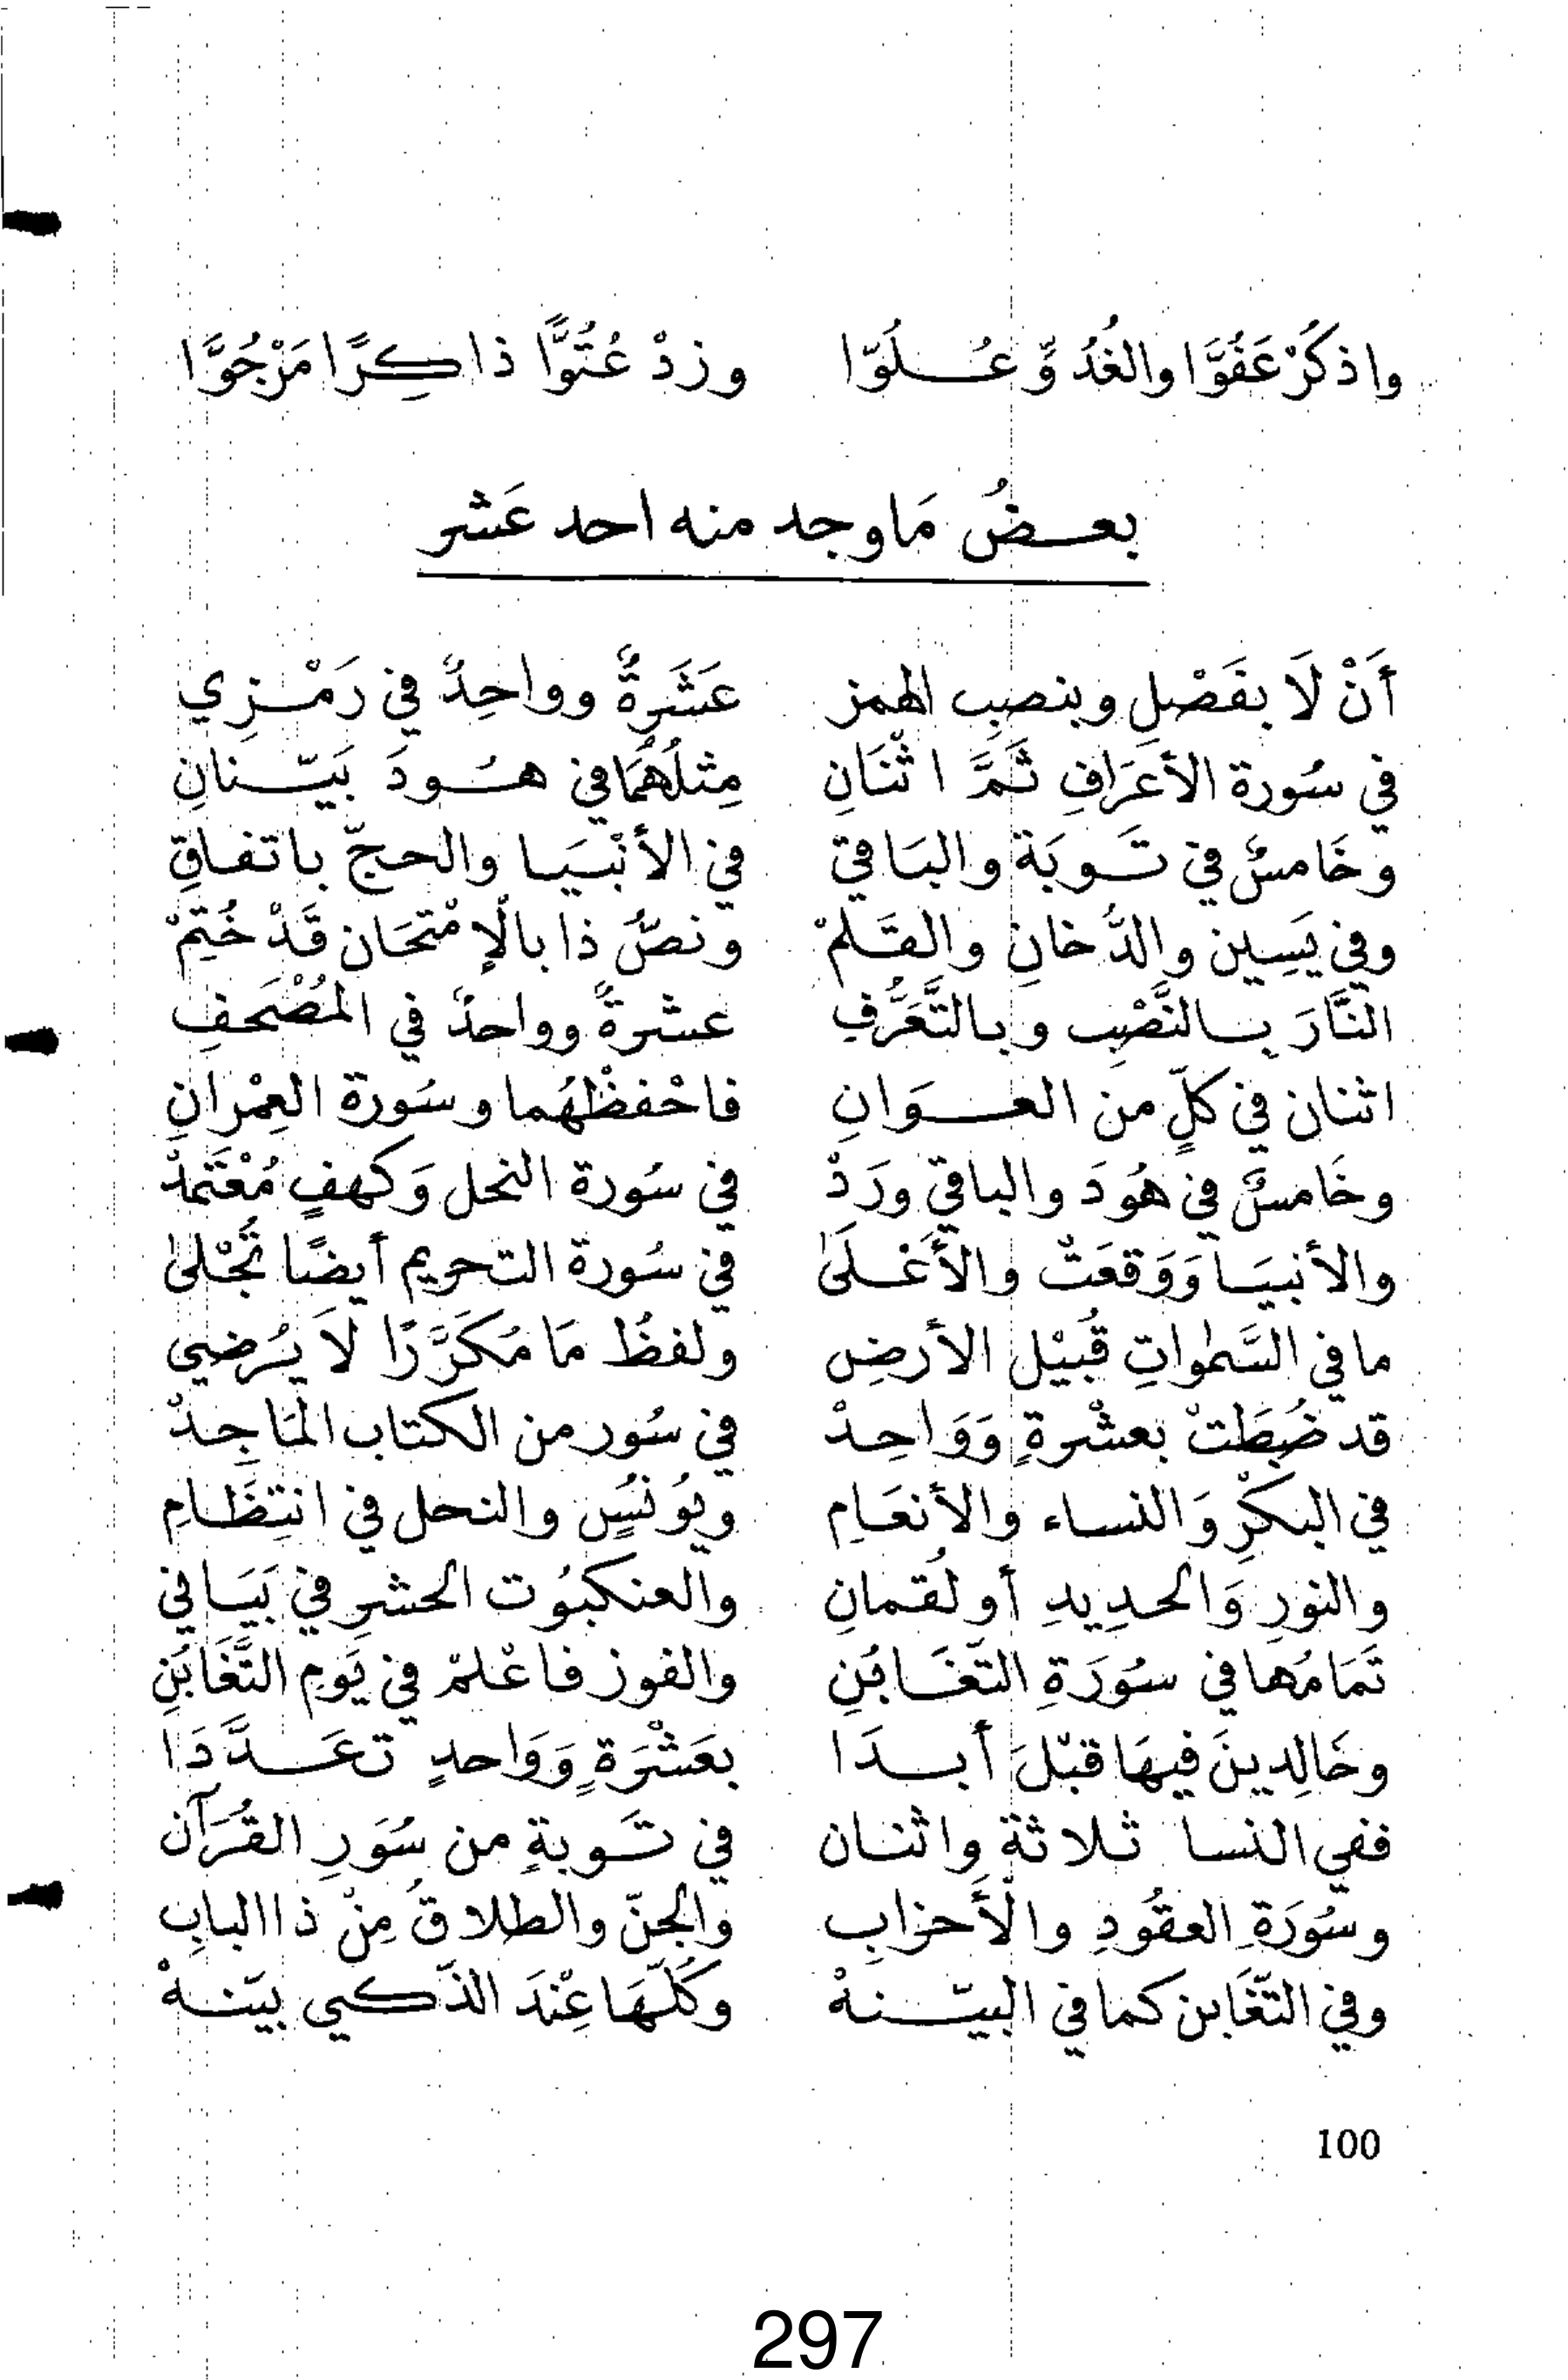 واذكُرْ عَفُوًّا والغُدُوِّ عُلُوّا وزدْ عُتُوًّا ذاكِرًا مَرْجُوَّا
بعضُ مَا وجد منه احد عَشر
أَنْ لَا بفَصْلِ وبنصبِ الهمز عَشَرةٌ وواحِدٌ في رَمْزِي
في سُورة الأعَرَافِ ثَمَّ اثْنَانِ مِثلُهُمَا في هُودَ بَيّنانِ
وخَامسٌ في تَوبَة والبَاقي في الأنْبَيَا والحجّ باتفاقِ
وفي يَسِين والدُّخانِ والقَلمْ ونصُّ ذا بالْإمْتحَان قَدْ خُتِمْ
النَّارَ بالنَّصْبِ وبالتَّعَرُّفِ عشرةٌ وواحدٌ في المُصْحَفِ
اثنان في كلٍّ من العَوَانِ فاحْفظْهُما وسُورة العِمْرانِ
وخَامسٌ في هُودَ والباقي ورَدْ في سُورة النحل وَكهفٍ مُعْتَمدْ
والأنبيَا وَوَقعَتْ والأَعْلَىٰ في سُورة التحريم أيضًا تُجْلىٰ
ما في السَّمٰواتِ قُبيْل الأرضِ ولفظُ مَا مُكَرَّرًا لاَ يُرضي
قد ضُبَطَتْ بعشْرةٍ وَوَاحِدْ في سُور من الكتاب المَاجِدْ
في البكْرِ وَالنساء والأنعَامِ ويُونسٍ والنحل في انتِظَامِ
والنورِ وَالحدِيدِ أو لُقمانِ والعنكبُوت الحشرِ في بَيَاني
تَمَامُها في سُورَةِ التّغَابُنِ والفوز فاعْلمْ في يَومِ التَّغَابُنِ
وخَالِدينَ فيهَا قبْلَ أبدَا بعَشْرَةٍ وَوَاحدٍ تعَدَّدَا
ففي النسا ثلاثة واثنان في تَوبةٍ من سُوَرِ القُرَآن
وسُورَةِ العقُودِ والْأَحزابِ والجنّ والطلاقُ مِنْ ذا البابِ
وفي التّغَابن كما في البيّنهْ وكُلّهَا عِنْدَ الذّكي بيّنهْ
100
297